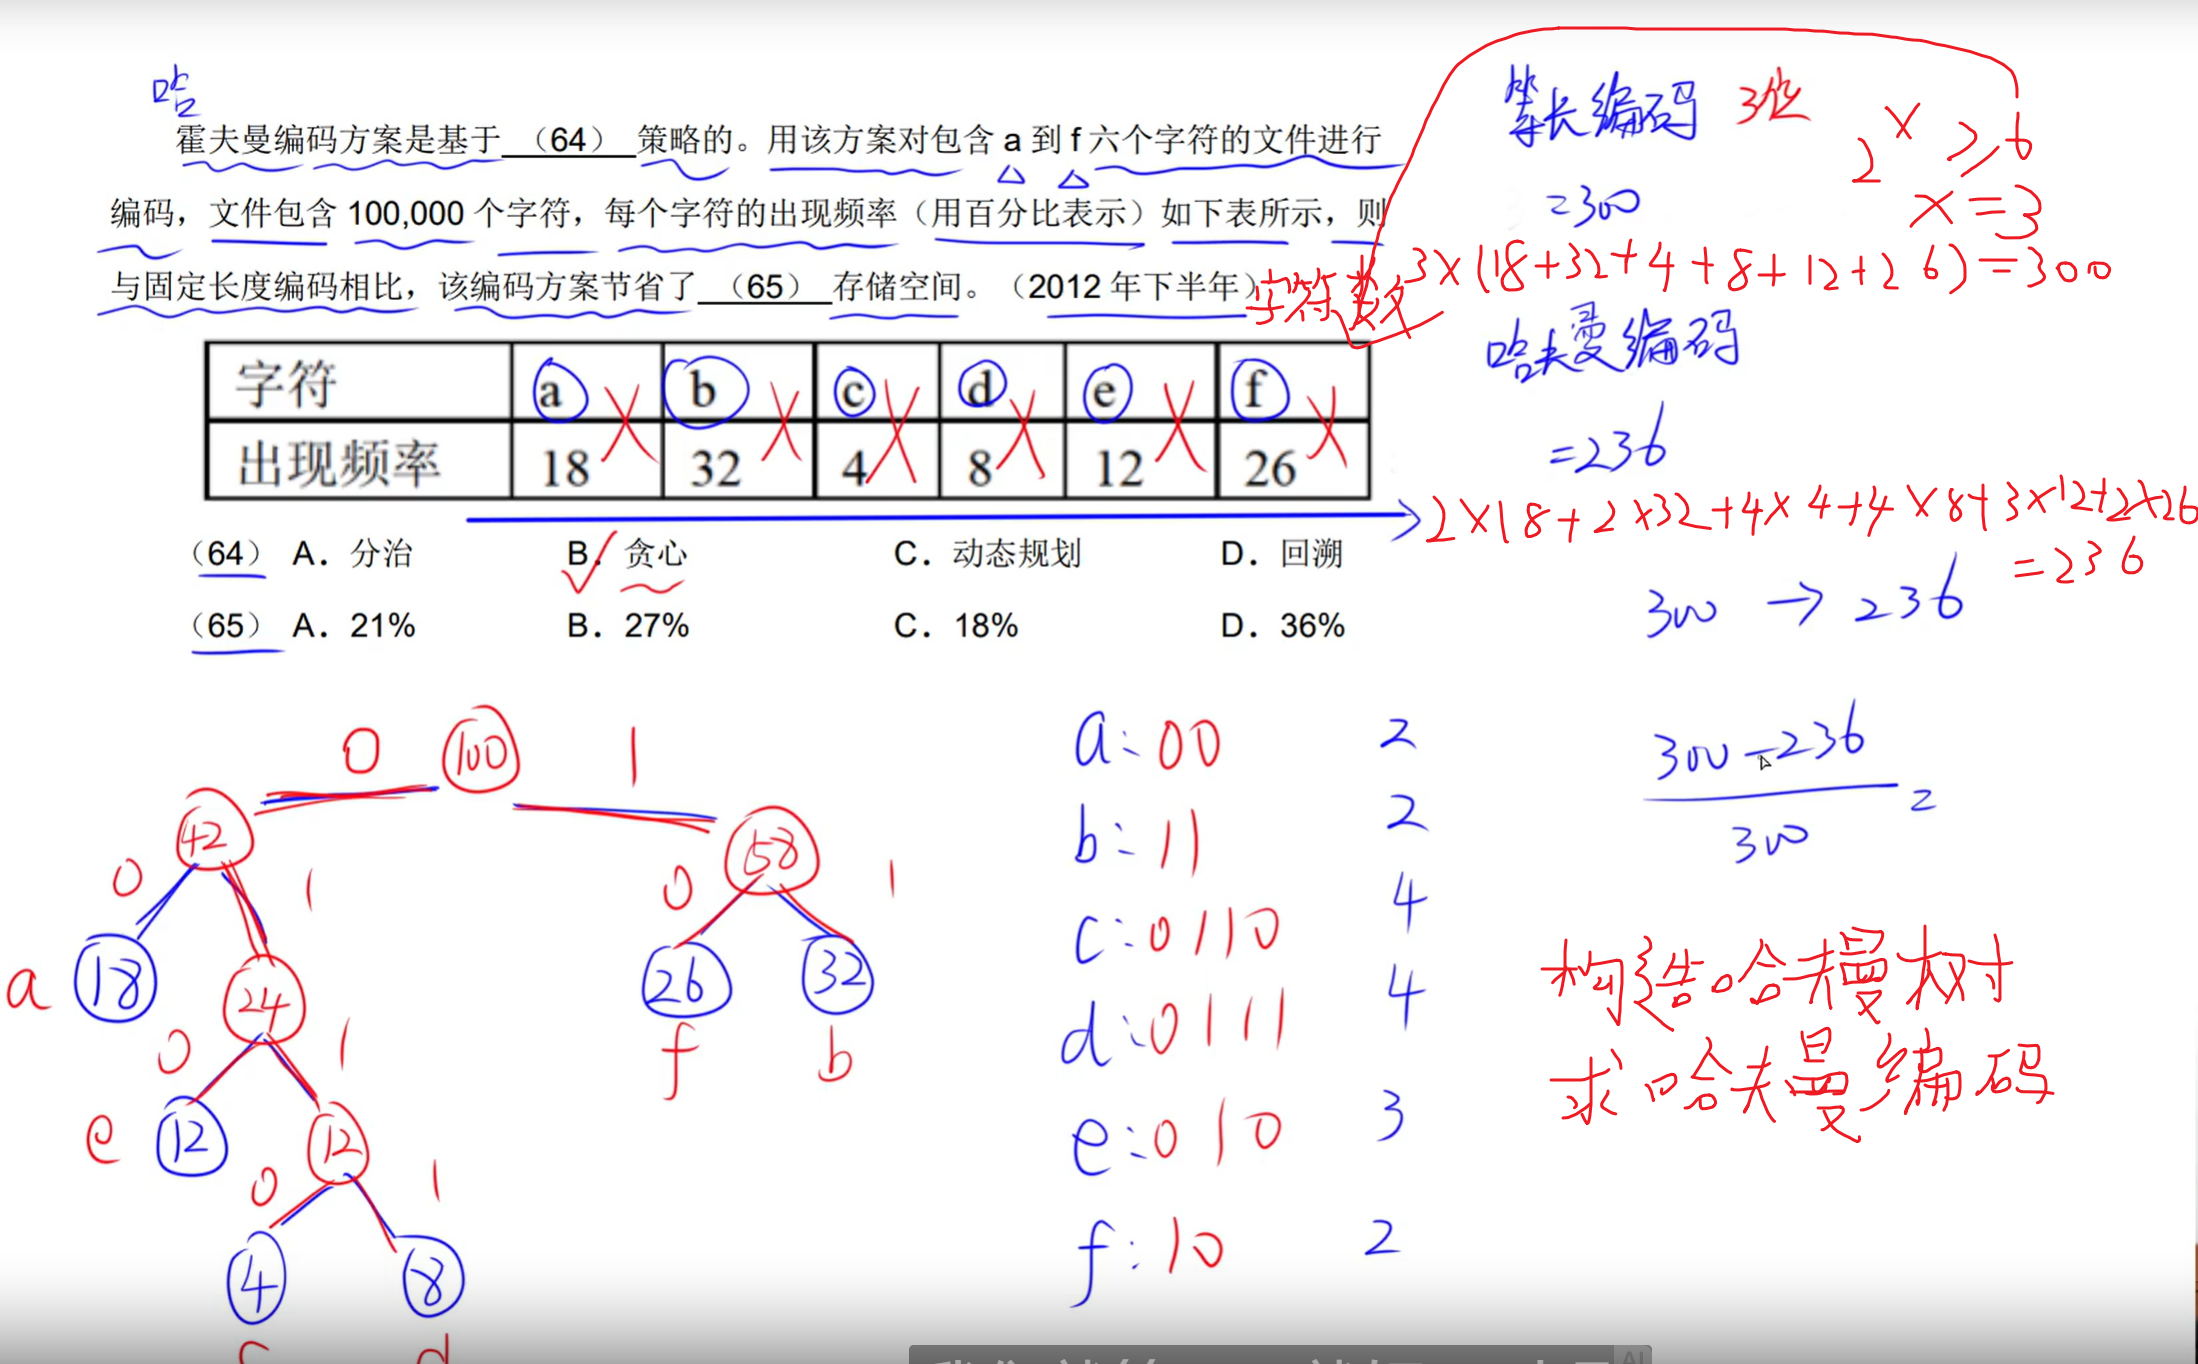 哈
霍夫曼编码方案是基于（64）策略的。用该方案对包含 a 到 f 六个字符的文件进行
编码，文件包含 100,000 个字符，每个字符的出现频率（用百分比表示）如下表所示，则
与固定长度编码相比，该编码方案节省了（65）存储空间。（2012 年下半年）
字符 a b c d e f
出现频率 18 32 4 8 12 26
（64） A．分治 B．贪心 C．动态规划 D．回溯
（65） A．21% B．27% C．18% D．36%
等长编码 3位
2^x ≥ 6
=300
x=3
字符数
3×(18+32+4+8+12+26)=300
哈夫曼编码
=236
2×18+2×32+4×4+4×8+3×12+2×26
=236
300 → 236
300-236
300
=
构造哈夫曼树
求哈夫曼编码
0 100 1
42 58
0 1 0 1
a 18 24 26 32
0 1 f b
e 12 12
0 1
4 8
d
a: 00 2
b: 11 2
c: 0110 4
d: 0111 4
e: 010 3
f: 10 2
AI